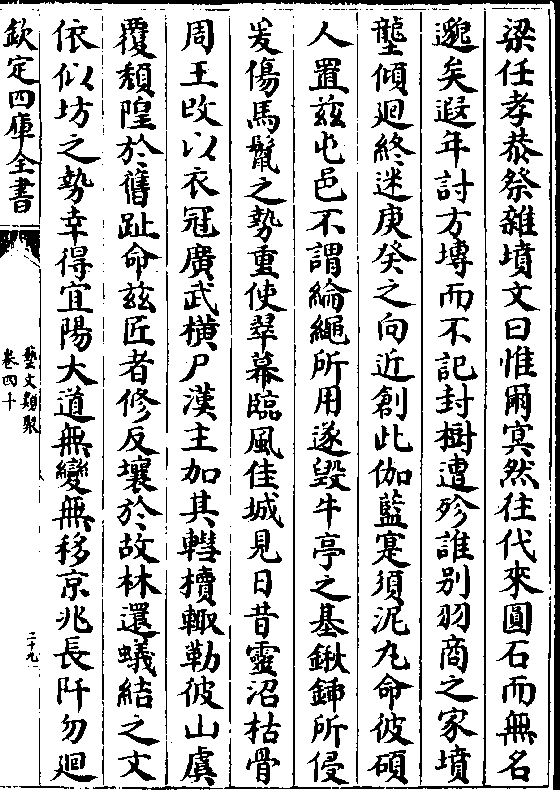 梁任孝恭祭雜墳文曰惟爾㝠然往代來圓石而無名
邈矣遐年討方塼而不記封樹遭殄誰别羽商之家墳
壟傾廻終迷庚癸之向近創此伽藍寔須泥丸命彼碩
人置兹屯邑不謂綸繩所用遂毁牛亭之基鍬鍤所侵
爰傷馬鬛之勢重使翠幕臨風佳城見日昔靈沼枯骨
周王改以衣冠廣武横尸漢主加其轊櫝輙勒彼山虞
覆頽隍於舊趾命兹匠者修反壤於故林還蟻結之丈
依似坊之勢幸得宜陽大道無變無移京兆長阡勿廻
欽定四庫全書
藝文類聚
卷四十
二十九